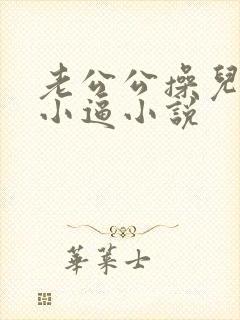 老公公操兒
小逼小說
華菜士